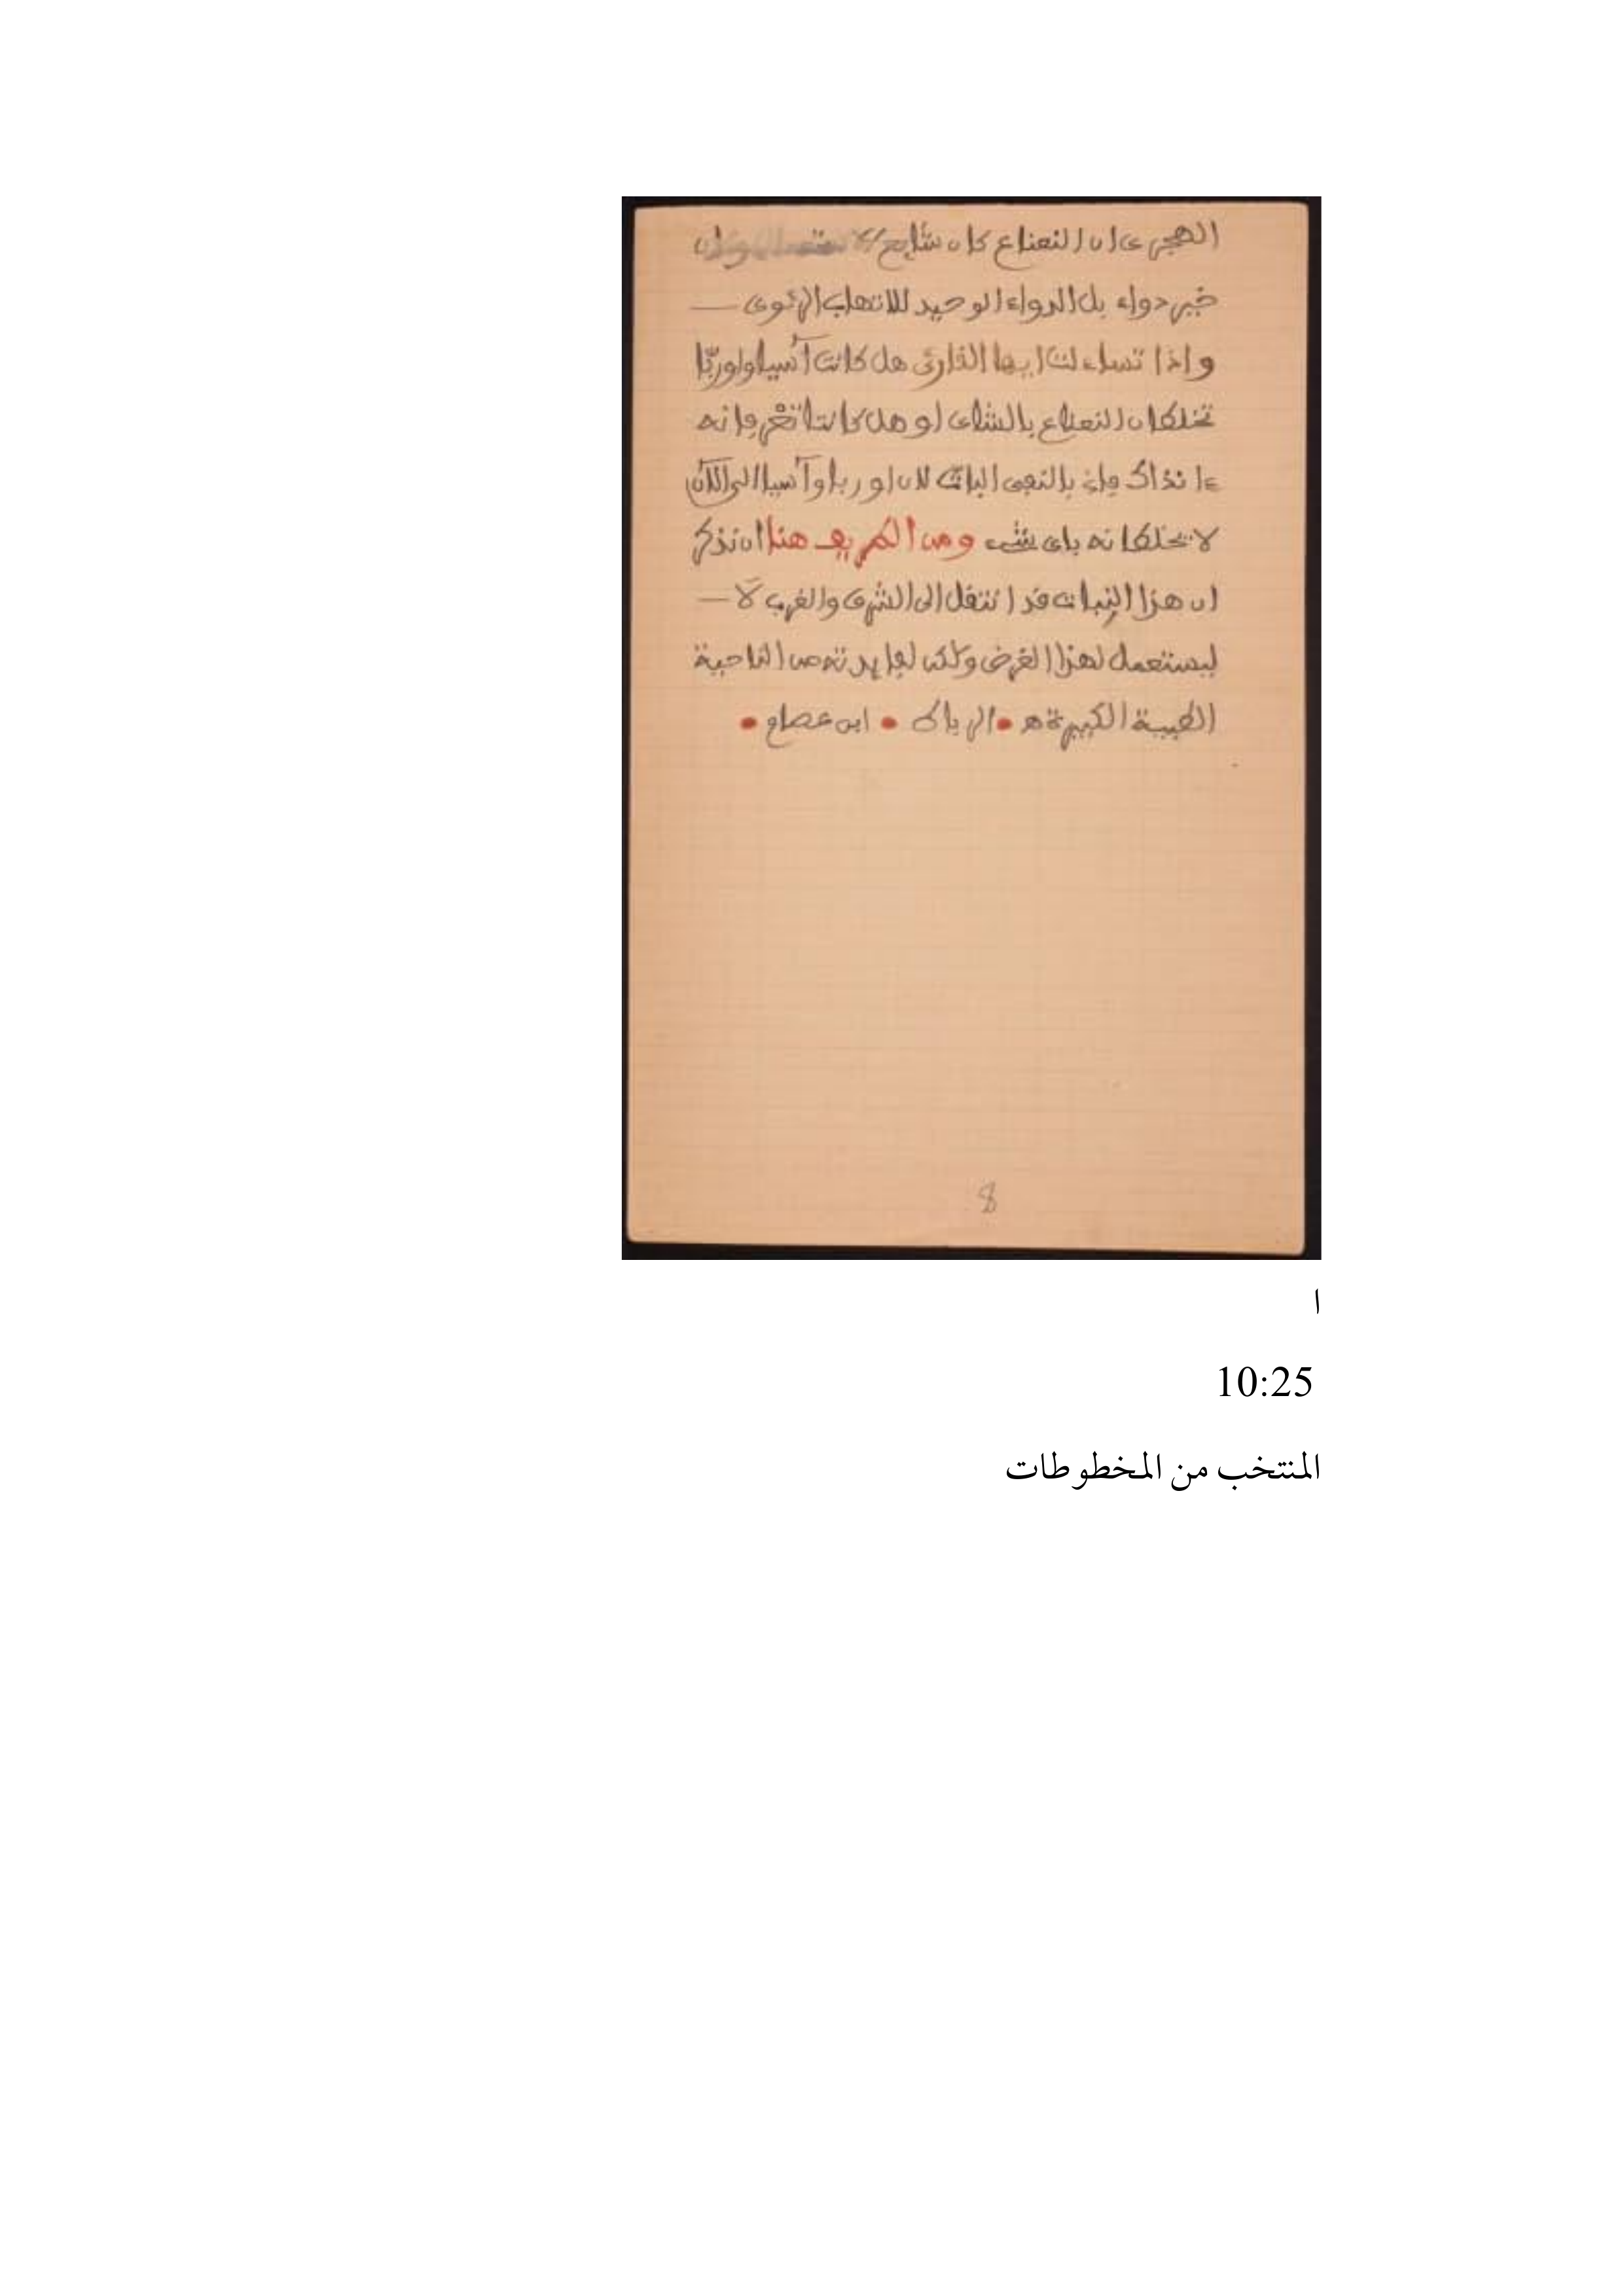 الهجرى ان النعناع كان شايع الاستعمال وكان
خير دواء بل الدواء الوحيد للالتهاب الرئوى —
واذا تساءلت ايها القارئ هل كانت آسيا واوربّا
تخلطان النعناع بالشاى او هل كانتا تغر فانه
ءانذاك فاذ بالنفى البات لان اوربا وآسيا الى الآن
لا تخلطانه باى شىء ومن الطريف هنا ان نذكر
ان هذا النبات قد انتقل الى الشرق والغرب لا —
ليستعمل لهذا الغرض ولكن لفايدته من الناحية
الطبية الكبيرة هـ • الرباط • ابن عصام •
8
ا
10:25
المنتخب من المخطوطات